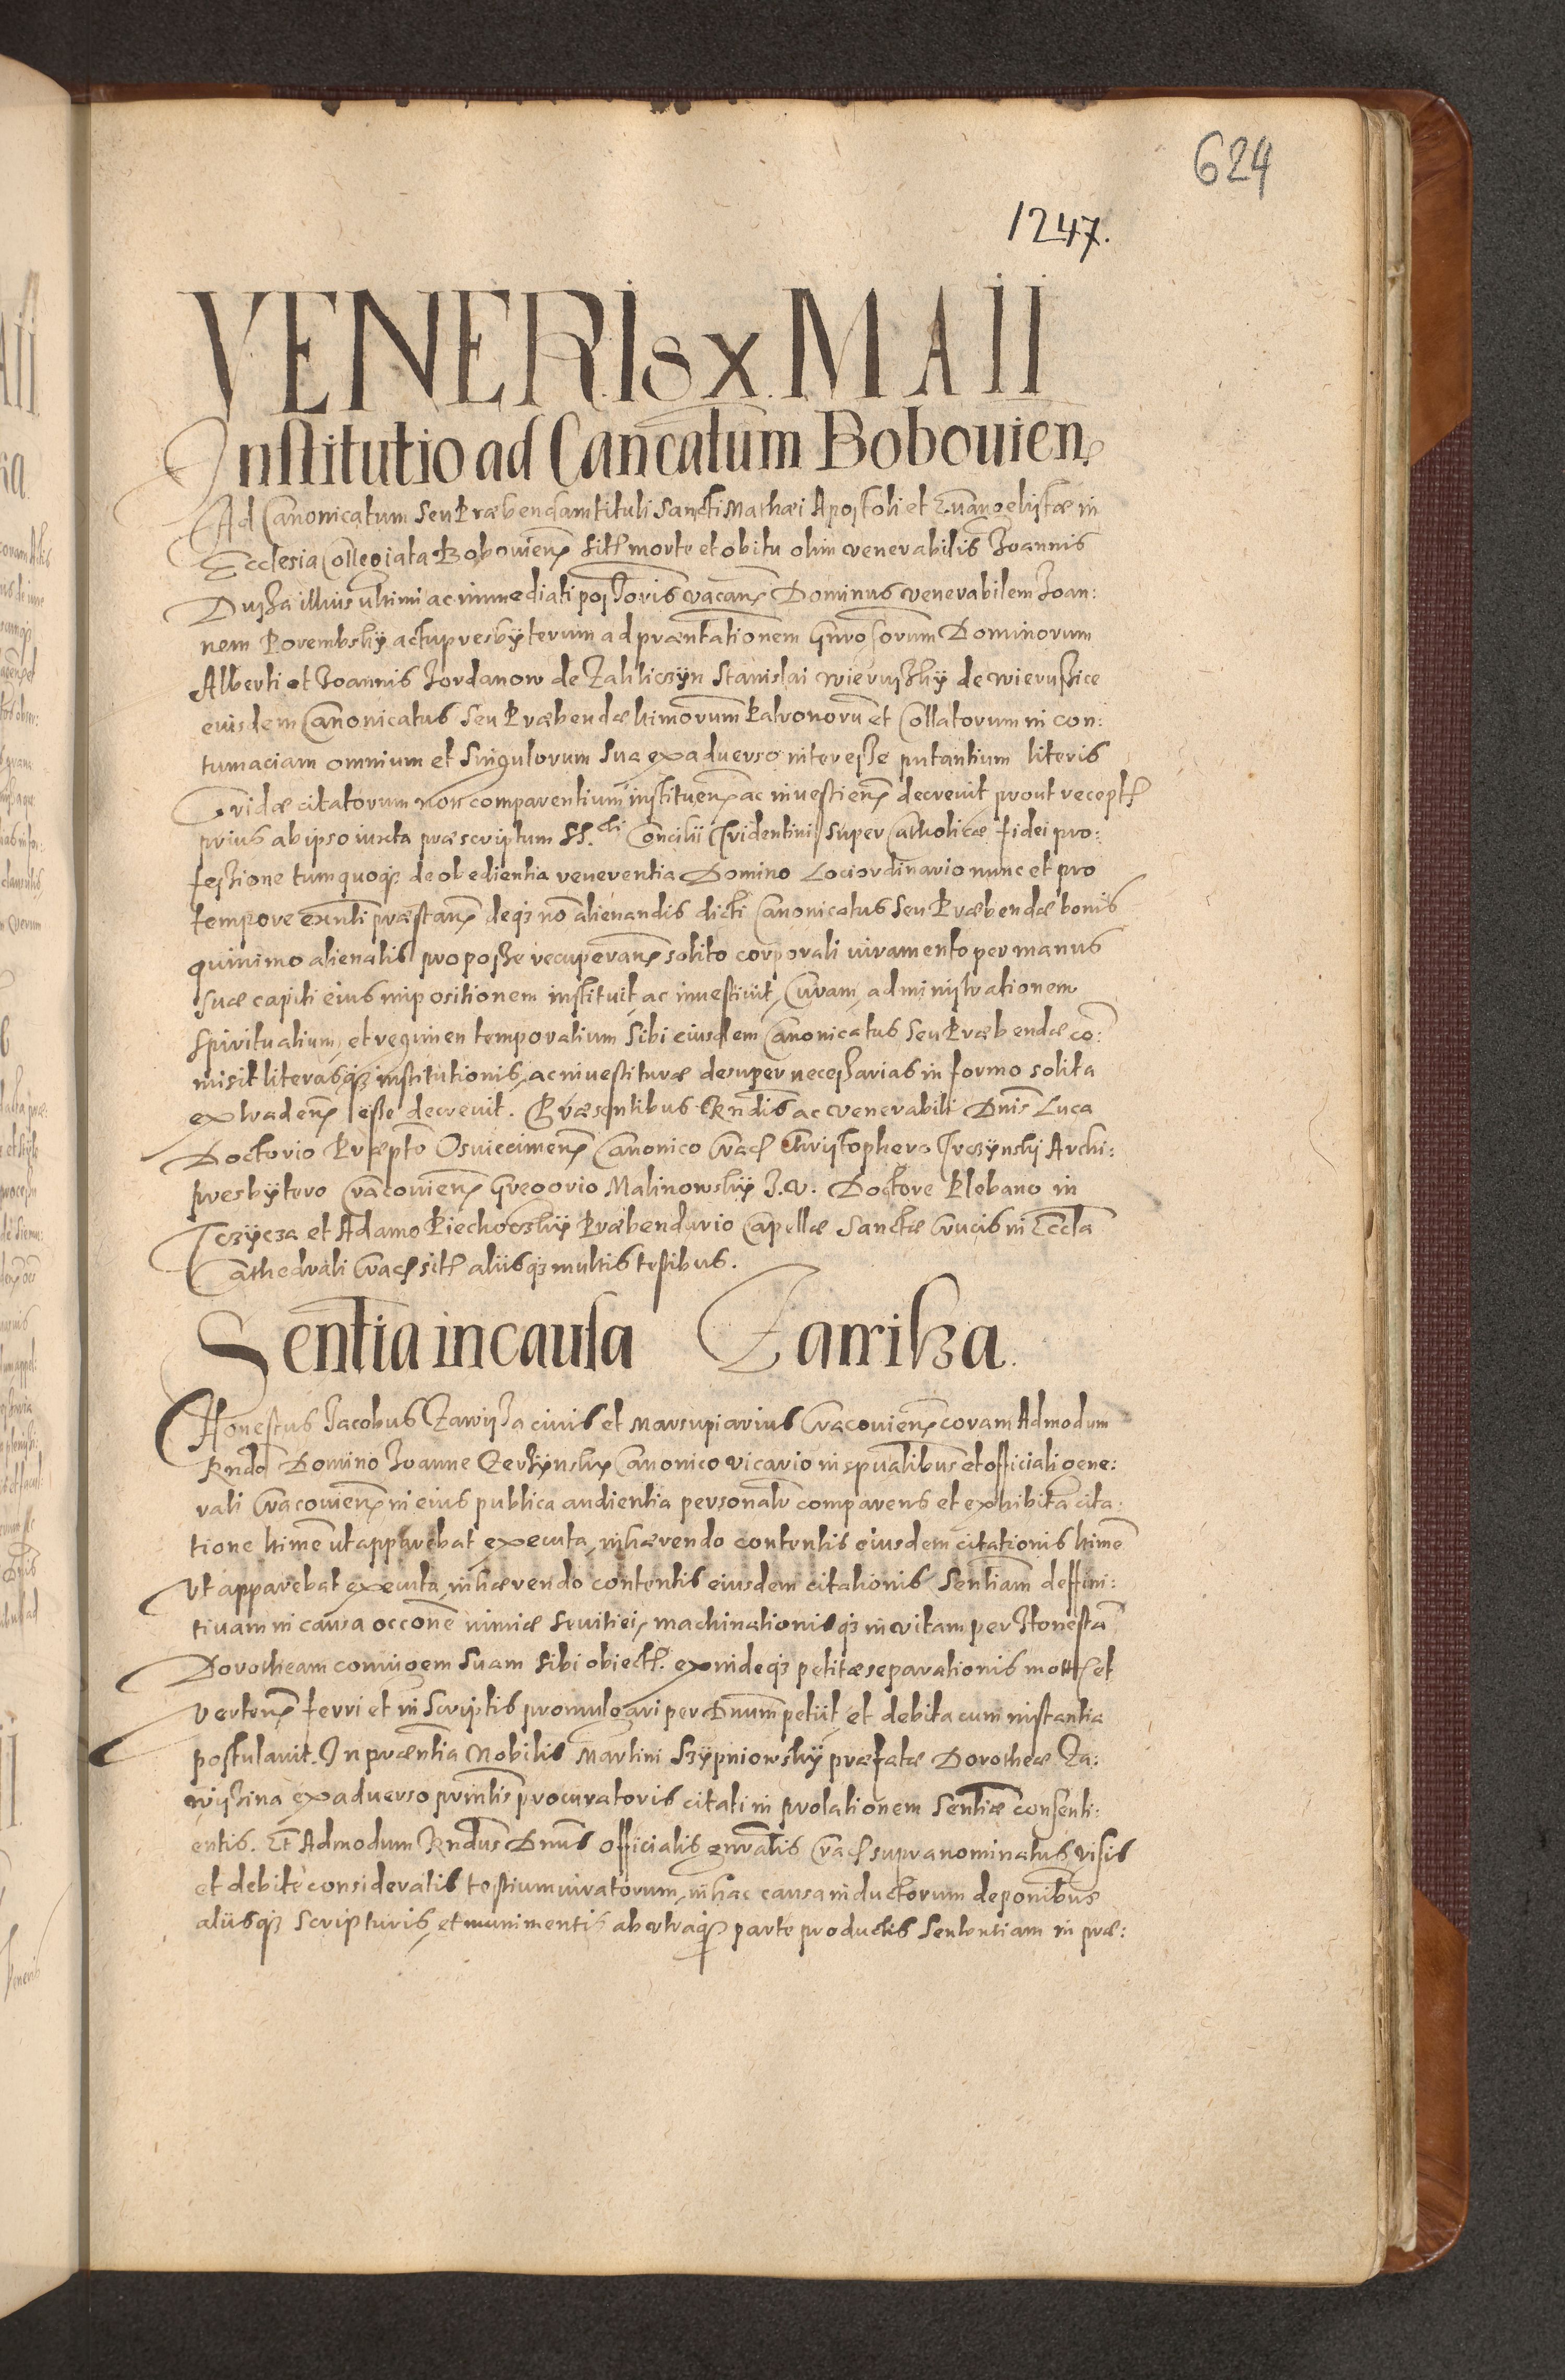 624
1247.
VENERIs X. MAII
Institutio ad Cancatum Bobouien
Ad Canonicatum seu Præbendam tituli Sancti Mathæi Apostoli et Euangelistæ in
Ecclesia Collegiata Bobouien sitt morte et obitu olim venerabilis Joannis
Duska illius ultimi ac immediati possoris vacan Dominus venerabilem Joan:
nem Porembsky actu presbyterum ad præntationem Gnrosorum Dominorum
Alberti et Joannis Jordanow de Zakliczyn Stanislai Wieruszky de Wierussice
eiusdem Canonicatus seu Præbendæ ltimorum Patronoru et Collatorum in con:
tumaciam omnium et singulorum sua ex aduerso interesse putantium literis
Cridæ citatorum non comparentium instituen ac inuestien decreuit prout recept
prius ab ipso iuxta præscriptum SS.cti Concilii Tridentini super Catholicæ fidei pro:
fessione tum quoq de obedientia reuerentia Domino Loci ordinario nunc et pro
tempore exnti præstan deq no alienandis dicti Canonicatus seu Præbendæ bonis
quinimo alienatis pro posse recuperan solito corporali iuramento per manus
suæ capiti eius impositionem instituit, ac inuestiuit, Curam, administrationem
spiritualium, et regimen temporalium sibi eiusdem Canonicatus seu Præbendæ co:
misit literasq institutionis, ac inuestituræ desuper necessarias in formo solita
extraden esse decreuit. Præsentibus Rndis ac venerabili Dnis Luca
Doctorio Præpto Osuiecimen Canonico Crac Christophero Trczynsky Archi:
presbytero Cracouien Gregorio Malinowsky J.V. Doctore Plebano in
Tczycza et Adamo Piechoczky Præbendario Capellæ Sanctæ Crucis in Eccla
Cathedrali Crac sitt aliisq multis testibus.
Sentia in causa Zawiska.
Honestus Jacobus Zawiska ciuis et Marsupiarius Cracouien coram Admodum
Rndo Domino Joanne Canonico vicario in spualibus et officiali gene:
rali Cracouien in eius publica audientia personalr comparens et exhibita cita:
tione ltime ut apparebat executa, inhærendo contentis eiusdem citationis ltime
Vt apparebat executa, inhærendo contentis eiusdem citationis Sentiam deffini:
tiuam in causa occone nimiæ seuitiei, machinationisq in vitam per Honesta
Dorotheam coniugem suam sibi obiect. exindeq petitæ separationis mott et
verten ferri et in scriptis promulgari per Dnum petiit et debita cum instantia
postulauit. In præntia Nobilis Martini Szypniowsky præfatæ Dorotheæ Za:
wiskina ex aduerso prinlis procuratoris citati in prolationem Sentiæ consenti:
entis. Et Admodum Rndus Dnus officialis gnralis Crac supra nominatus visis
et debite consideratis testium iuratorum, in hac causa inductorum deponibus
aliisq scripturis, et munimentis ab vtraq parte productis Sententiam in præ: